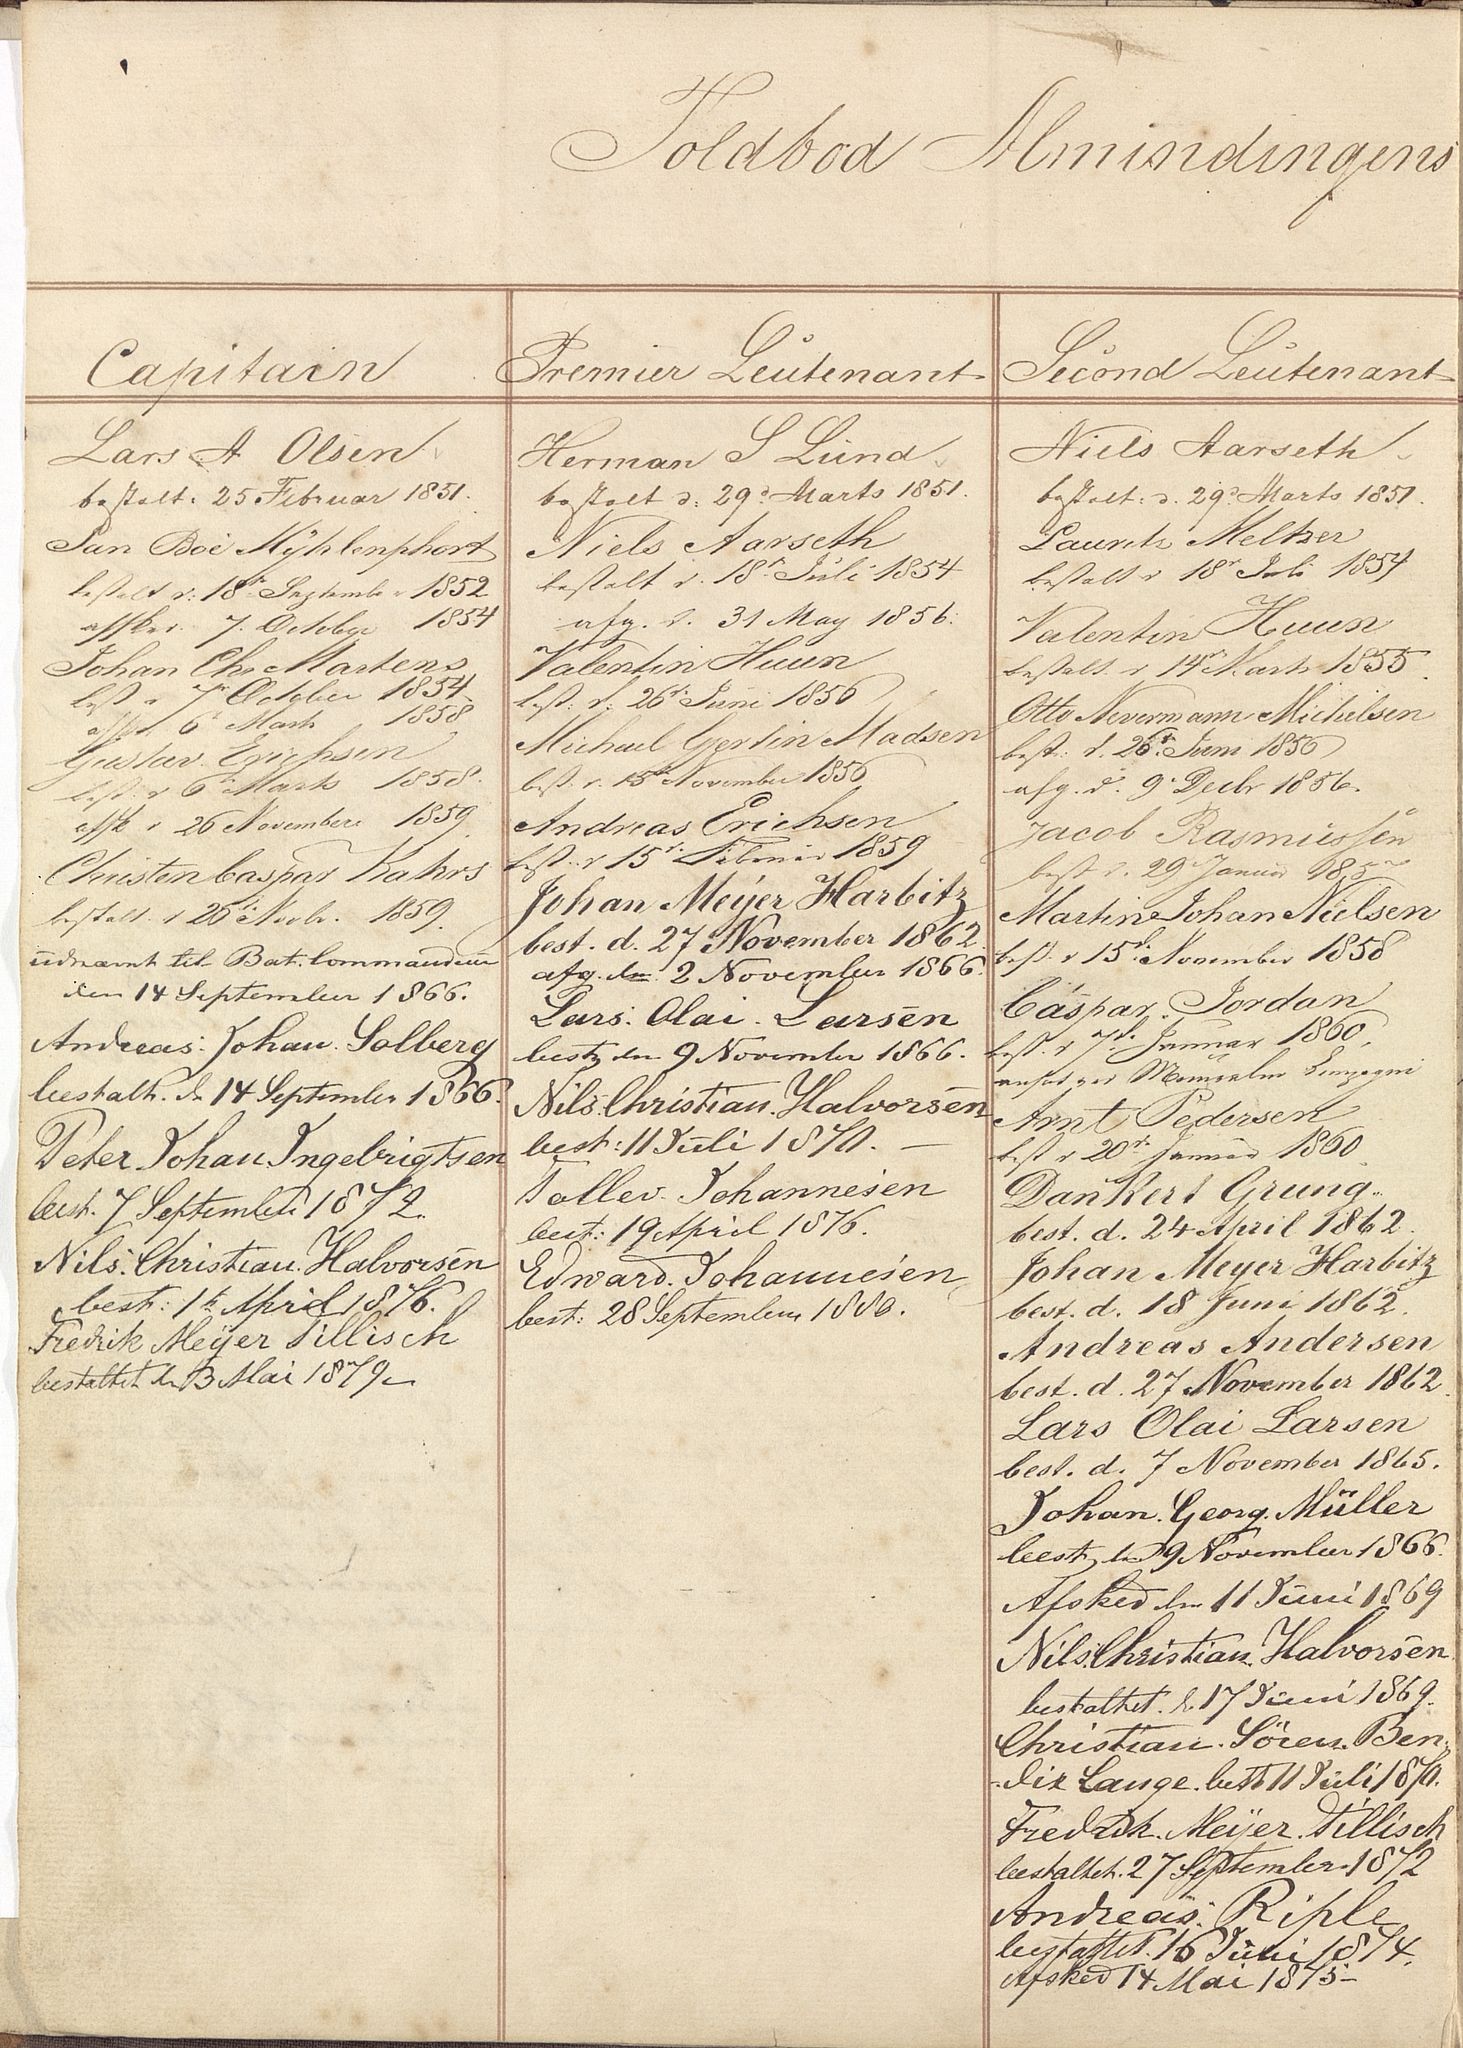 Toldbod Almindingens
Capitain
Lars A Olsen
bestalt. 25 Februar 1851.
Jan Boe Mÿhlenphort
bestalt d. 18de September 1852
afsked 7. October 1854
Johan Chr Martens
best d 7de October 1854
afsk. 6t Marts 1858
Gustav Erichsen
best. d 6t Marts 1858.
afsk d 26 November 1859
Christen Caspar Kahrs
bestalt. d 26 Novbr. 1859.
údnævnt til Bat. Commandeur
den 14 September 1866.
Andreas. Johan. Solberg
bestalt. dn 14 September 1866.
Peter Johan Ingebrigtsen
best. 7 September 1872.
Nils. Christian. Halvorsen
best: 1te April 1876.
Fredrik Meÿer Tillisch
bestaltet dn 3 Mai 1879
Premier Leutenant
Herman S Lund
bestalt d: 29de Marts 1851.
Niels Aarseth
bestalt d. 18de Juli 1854
afg. d. 31 May 1856.
Valentin Huun
best: d: 26de Juni 1856
Michael Gjertin Madsen
best. d. 15de November 1856
Andreas Erichsen
best. d 15de Februar 1859
Johan Meÿer Harbitz
best. d. 27 November 1862.
afg. dn 2 November 1866.
Lars. Olai. Larsen
best dn 9 November 1866.
Nils. Christian. Halvorsen
best: 11 Juli 1870. —
Tollev. Johannesen
best: 19 April 1876.
Edward. Johannesen
best: 28 September 1880.
Second Leutenant
Niels Aarseth
bestalt: d. 29de Marts 1851.
Lauritz Meltzer
bestalt d 18de Juli 1854
Valentin Huun
bestalt. d 14de Marts 1855.
Otto Nevermann Michelsen
best: d. 26de Juni 1856
afg. d. 9de Decbr 1856.
Jacob Rasmussen
best d. 29 Januar
Martin Johan Nielsen
best. d 15de November 1858
Caspar. Jordan
best. d 7de Januar 1860.
Arnt Pedersen
best d 20de Januar 1860.
Dankert Grung.
best. d. 24 April 1862.
Johan Meyer Harbitz
best. d. 18 Juni 1862.
Andreas Andersen
best. d. 27 November 1862.
Lars Olai Larsen
best. d. 7 November 1865.
Johan. Georg. Müller
best dn 9 November 1866.
Afsked dn 11 Juni 1869
Nils. Christian. Halvorsen
bestaltet. d 17 Juni 1869.
Christian. Sören. Ben-
-dix Lange. best 11 Juli 1870.
Fredrik. Meÿer. Tillisch
bestaltet. 27 September 1872
Andreas. Riple
bestaltet. 16 Juni 1874.
Afsked 14 Mai 1875 —